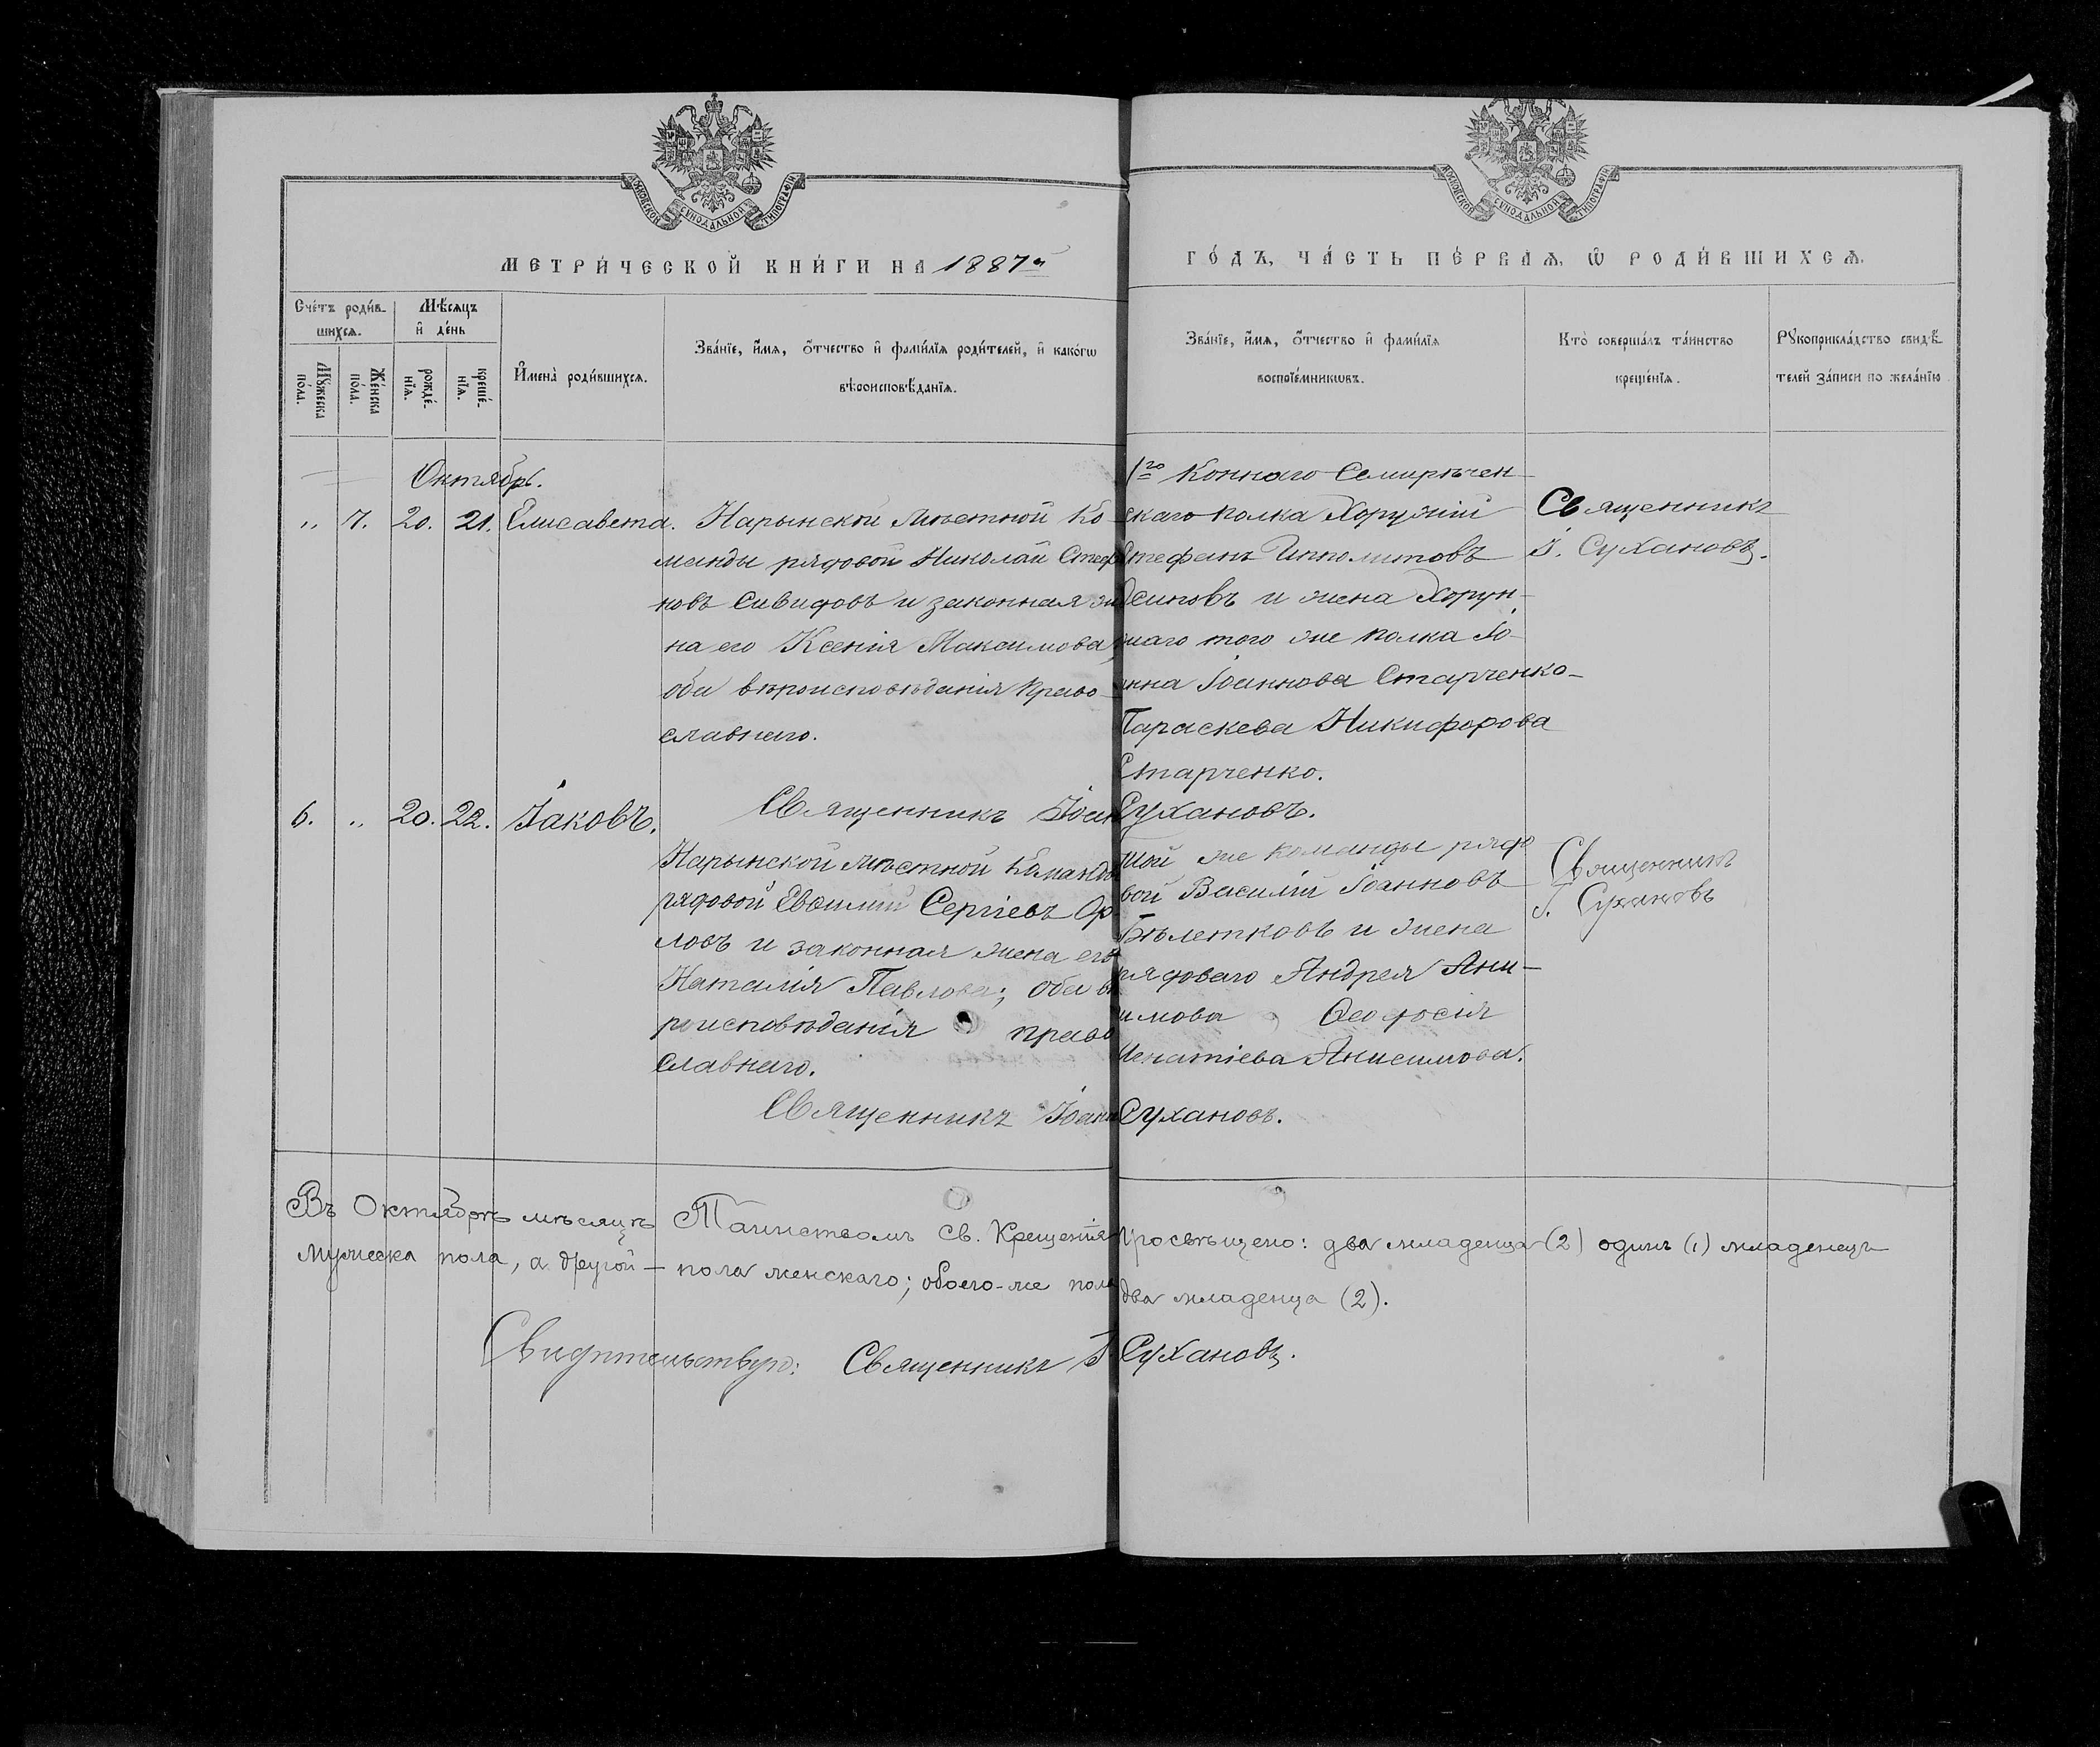 МОСКОВСКОЙ СѴНОДАЛЬНОЙ ТИПОГРАФІИ
МОСКОВСКОЙ СѴНОДАЛЬНОЙ ТИПОГРАФІИ
МЕТРИ́ЧЕСКОЙ КНИ́ГИ НА 1887й
ГО́ДЪ, ЧА́СТЬ ПЕ́РВАѦ, Ѡ РОДИ́ВШИХСѦ.
Сче́тъ роди́в-
шихсѧ.
Мѣ́сѧцъ
и҆ де́нь
Мꙋ́жеска
по́ла.
Же́нска
по́ла.
рожде́-
нїѧ.
креще́-
нїѧ.
И҆мена̀ роди́вшихсѧ.
Зва́нїе, и҆́мѧ, ѻ҆́тчество и҆ фами́лїѧ роди́телей, и҆ како́гѡ
вѣроисповѣ́данїѧ.
Зва́нїе, и҆́мѧ, ѻ҆́тчество и҆ фами́лїѧ
воспрїе́мникѡвъ.
Кто̀ соверша́лъ та́инство
креще́нїѧ.
Рꙋкоприкла́дство свидѣ́-
телей за́писи по жела́нїю
Октябрь.
„ 7. 20. 21. Елисавета.
Нарынской мѣстной ко-
манды рядовой Николай Стефа
новъ Сивидовъ и законная же
на его Ксенія Максимова,
оба вѣроисповѣданія право-
славнаго.
1го Коннаго Семирѣчен-
скаго полка Хорунжій
Стефанъ Ипполитовъ
Осиповъ и жена Хорун-
жаго того же полка Іо-
анна Іоаннова Старченко-
Параскева Никифорова
Старченко.
Священникъ
І. Сухановъ.
Священникъ Іоан Сухановъ.
6. „ 20. 22. Іаковъ.
Нарынской мѣстной команды
рядовой Евѳимій Сергіевъ Ор
ловъ и законная жена его
Наталія Павлова; оба вѣ
роисповѣданія право
славнаго.
той же команды рядо
вой Василій Іоанновъ
Бѣлетковъ и жена
рядоваго Андрея Ани-
симова Ѳеодосія
Игнатіева Анисимова.
Священникъ
І. Сухановъ
Священникъ Іоанн Сухановъ.
Въ Октябрѣ мѣсяцѣ Таинствомъ Св. Крещенія Просвѣщено: два младенца (2) одинъ (1) младенецъ
мужеска пола, а другой — пола женскаго; обоего-же пола два младенца (2).
Свидѣтельствую: Священникъ І. Сухановъ.